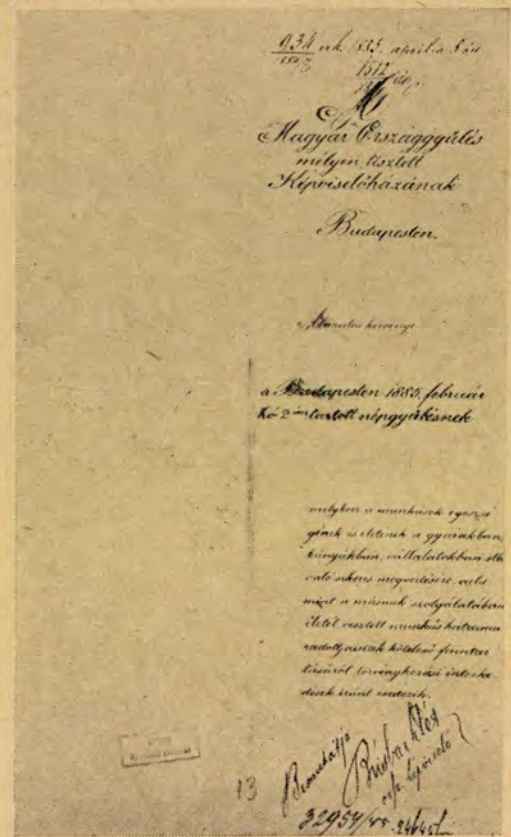 934 1885. április 5 én
1512
A
Magyar Országgyűlés
mélyen tisztelt
Képviselőházának
Budapesten.
Alázatos kérvénye
a Budapesten 1885. február
hó 2 án tartott népgyűlésnek
melyben a munkások egészsé
gének és életének a gyárakban,
bányákban, vállalatokban stb
való sikeres megvédésére, vala
mint a másnak szolgálatában
életét vesztett munkás hátrama
radottjainak kötelező fenntar
tásáról törvényhozási intézke
dések iránt esedezik.
Bemutatja
orsz. képviselő
13
32954/85.